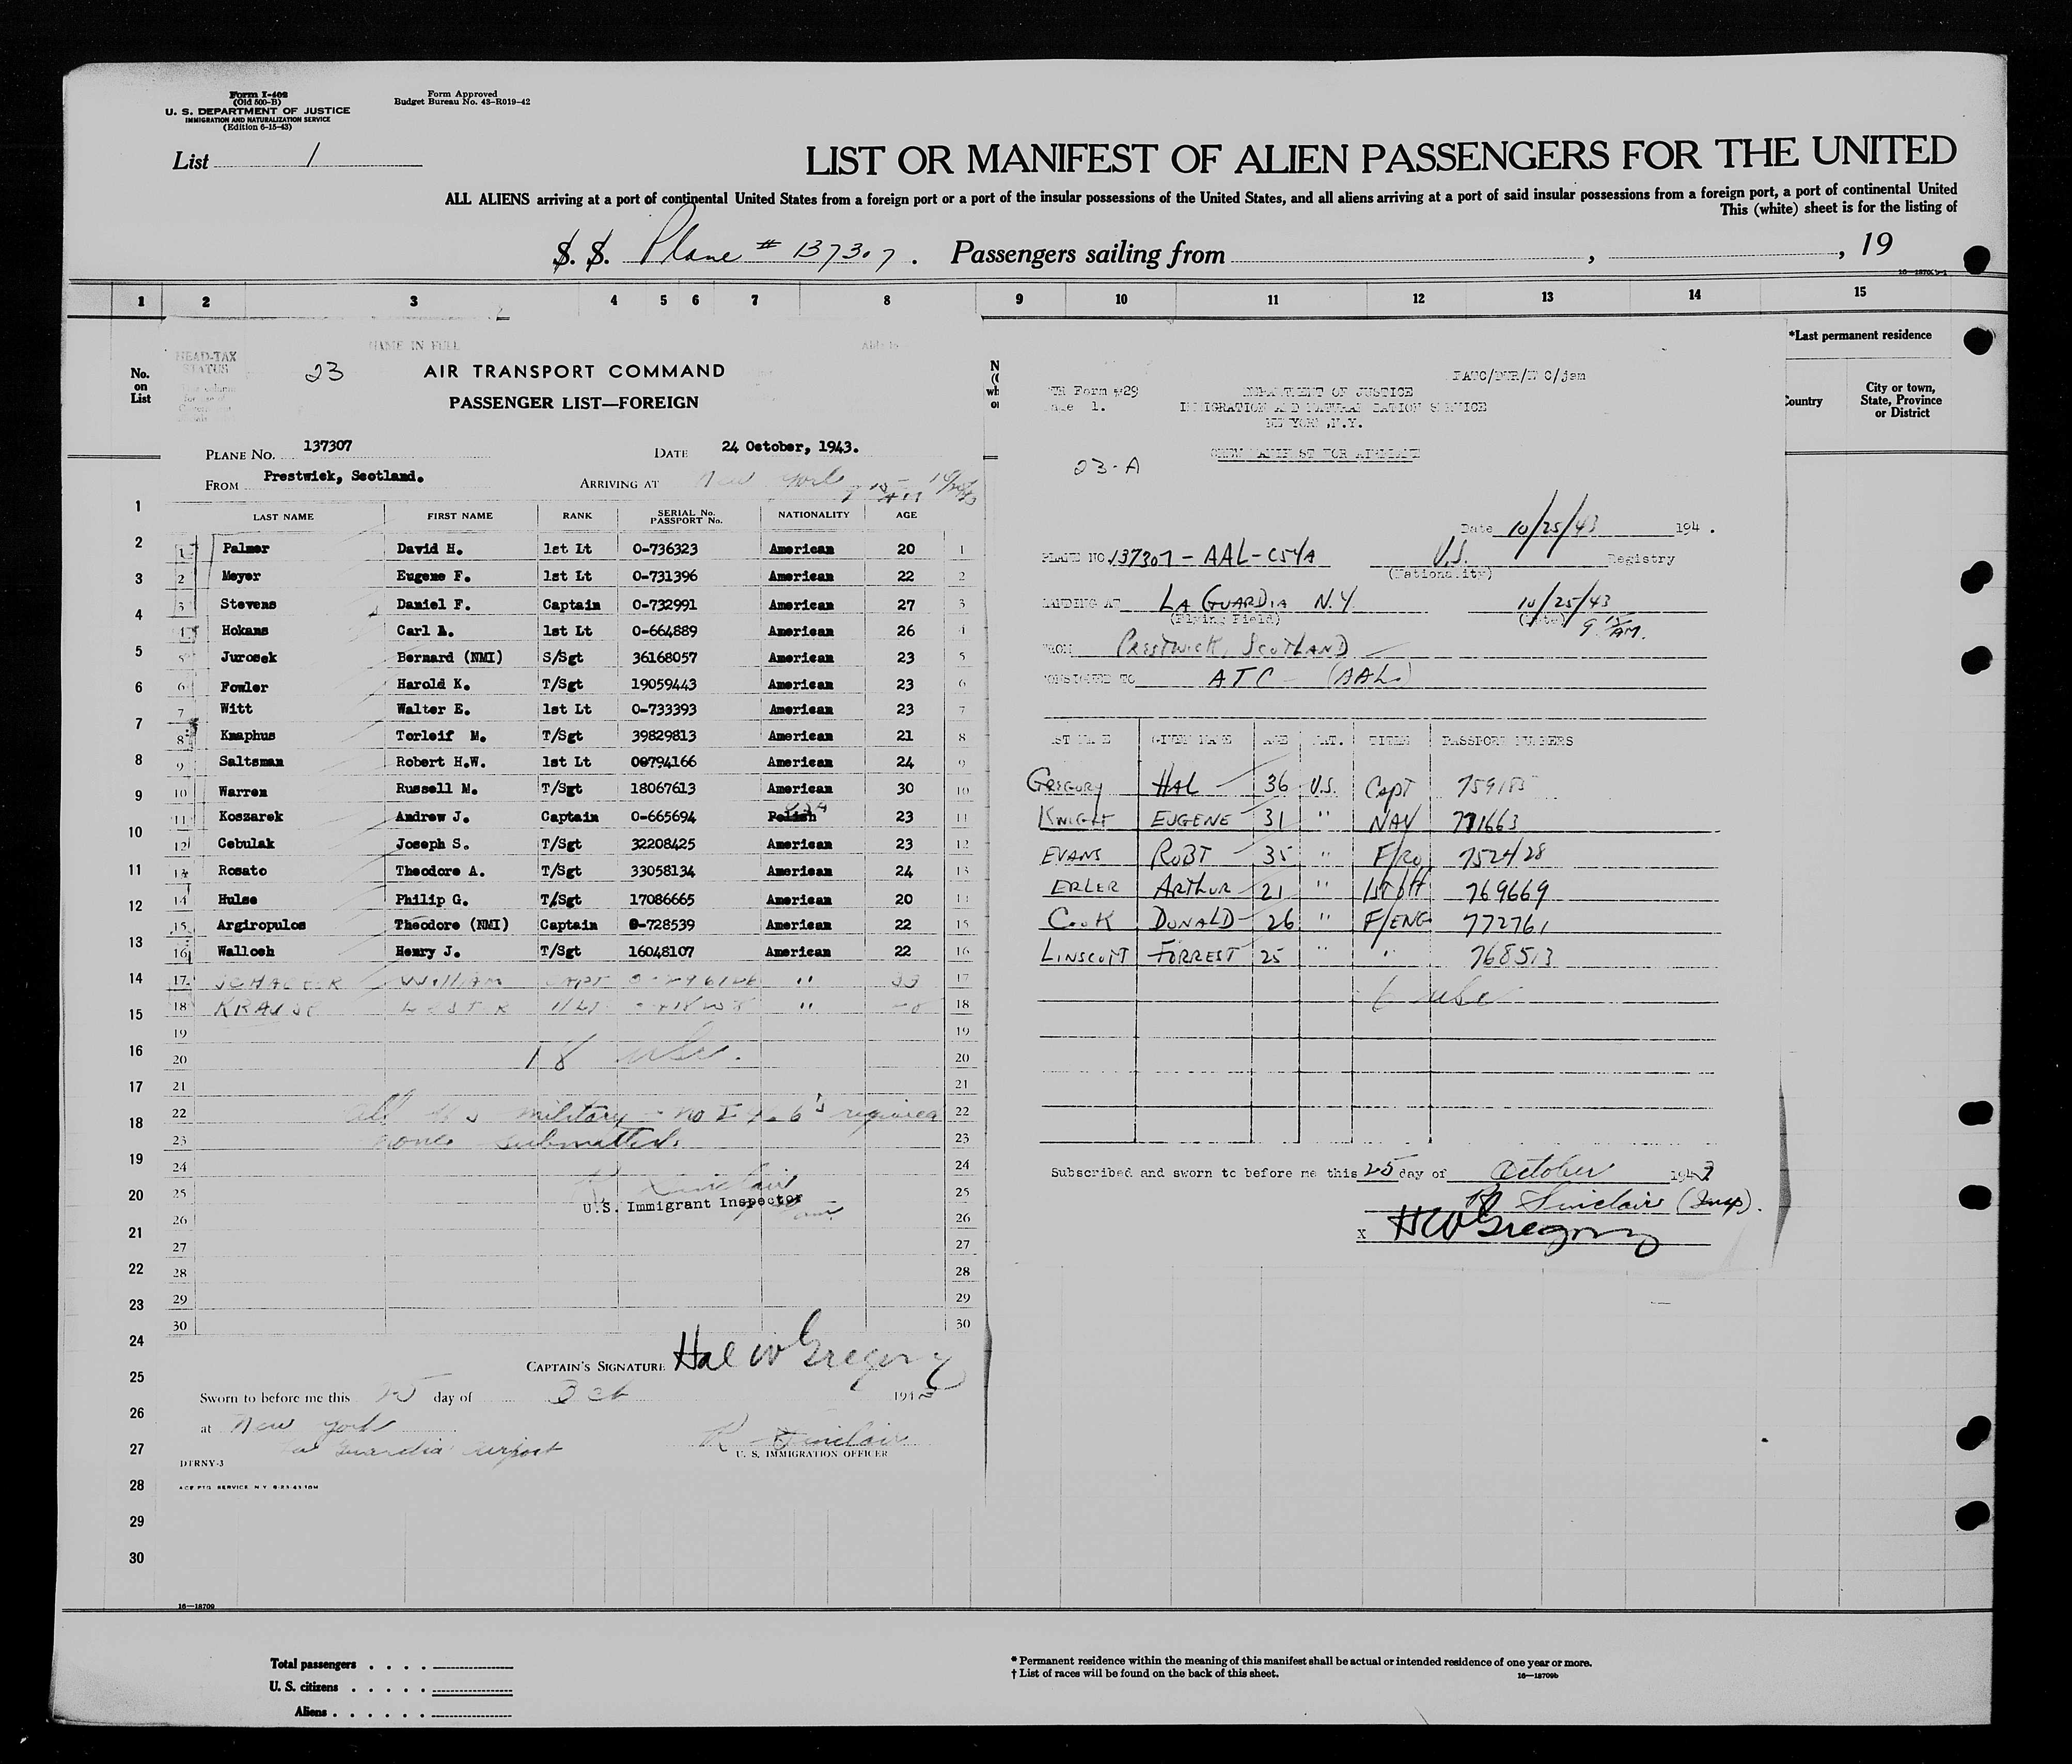 Form I-402
(Old 500-B)
U. S. DEPARTMENT OF JUSTICE
IMMIGRATION AND NATURALIZATION SERVICE
(Edition 6-15-43)
Form Approved
Budget Bureau No. 43-R019-42
List 1
LIST OR MANIFEST OF ALIEN PASSENGERS FOR THE UNITED
ALL ALIENS arriving at a port of continental United States from a foreign port or a port of the insular possessions of the United States, and all aliens arriving at a port of said insular possessions from a foreign port, a port of continental United
This (white) sheet is for the listing of
S. S. Plane # 137307. Passengers sailing from , , 19
1 2 3 4 5 6 7 8 9 10 11 12 13 14 15
No. on List
HEAD-TAX STATUS
NAME IN FULL
23
AIR TRANSPORT COMMAND
PASSENGER LIST—FOREIGN
PLANE NO. 137307 DATE 24 October, 1943.
FROM Prestwick, Scotland. ARRIVING AT New York
LAST NAME FIRST NAME RANK SERIAL No. PASSPORT No. NATIONALITY AGE
1 Palmer David H. 1st Lt 0-736323 American 20 1
2 Meyer Eugene F. 1st Lt 0-731396 American 22 2
3 Stevens Daniel F. Captain 0-732991 American 27 3
4 Hokans Carl A. 1st Lt 0-664889 American 26 4
5 Jurosek Bernard (NMI) S/Sgt 36168057 American 23 5
6 Fowler Harold K. T/Sgt 19059443 American 23 6
7 Witt Walter E. 1st Lt 0-733393 American 23 7
8 Knaphus Torleif M. T/Sgt 39829813 American 21 8
9 Saltsman Robert H.W. 1st Lt 00794166 American 24 9
10 Warren Russell M. T/Sgt 18067613 American 30 10
11 Koszarek Andrew J. Captain 0-665694 Polish USA 23 11
12 Cebulak Joseph S. T/Sgt 32208425 American 23 12
13 Rosato Theodore A. T/Sgt 33058134 American 24 13
14 Hulse Philip G. T/Sgt 17086665 American 20 14
15 Argiropulos Theodore (NMI) Captain 0-728539 American 22 15
16 Walloch Henry J. T/Sgt 16048107 American 22 16
17 William Capt " 33 17
18 KRAUSE " 18
19 19
20 18 USC. 20
21 21
22 All U S military - no I 466's required 22
23 none submitted. 23
24 24
R Sinclair
25 U.S. Immigrant Inspector 25
26 26
27 27
28 28
29 29
30 30
CAPTAIN'S SIGNATURE Hal W Gregory
Sworn to before me this 25 day of Oct 1943
at New York
La Guardia Airport
R Sinclair
U. S. IMMIGRATION OFFICER
DTRNY-3
ACE PTG SERVICE N Y 8-23-43 10M
1
2
3
4
5
6
7
8
9
10
11
12
13
14
15
16
17
18
19
20
21
22
23
24
25
26
27
28
29
30
16—18709
Form #29
1.
DEPARTMENT OF JUSTICE
IMMIGRATION AND NATURALIZATION SERVICE
NEW YORK, N.Y.
CREW MANIFEST FOR AIRPLANE
23-A
Date 10/25/43 194 .
PLANE NO. 137307 - AAL - C54A U.S. Registry
(Nationality)
LANDING AT LA GUARDIA N.Y. 10/25/43
(Flying Field) (Date) 9 15 AM.
FROM PRESTWICK, SCOTLAND
CONSIGNED TO ATC - (AAL)
LAST NAME GIVEN NAME AGE NAT. TITLE PASSPORT NUMBERS
GREGORY HAL 36 U.S. Capt 759185
KNIGHT EUGENE 31 " NAV 771663
EVANS ROBT 35 " F/RO 752428
ERLER ARTHUR 21 " 1ST Off 769669
COOK DONALD 26 " F/ENG 772761
LINSCOTT FORREST 25 " " 768513
6 USC
Subscribed and sworn to before me this 25 day of October 1943
R Sinclair (Insp).
X HW Gregory
*Last permanent residence
Country
City or town, State, Province or District
Total passengers
U. S. citizens
Aliens
* Permanent residence within the meaning of this manifest shall be actual or intended residence of one year or more.
† List of races will be found on the back of this sheet.
16—18709b